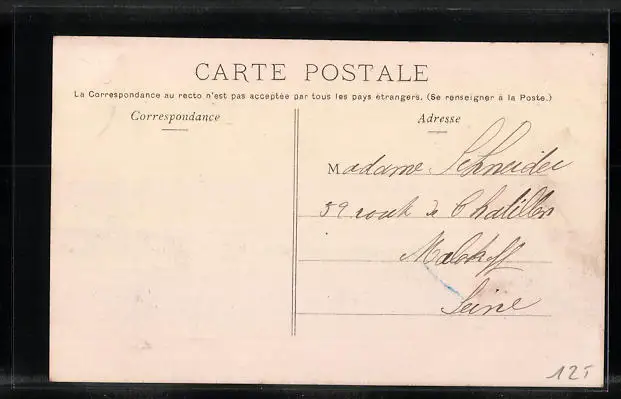 CARTE POSTALE
La Correspondance au recto n'est pas acceptée par tous les pays étrangers. (Se renseigner à la Poste.)
Correspondance
Adresse
Madame Schneider
59 route de Chatillon
Malakoff
Seine
125